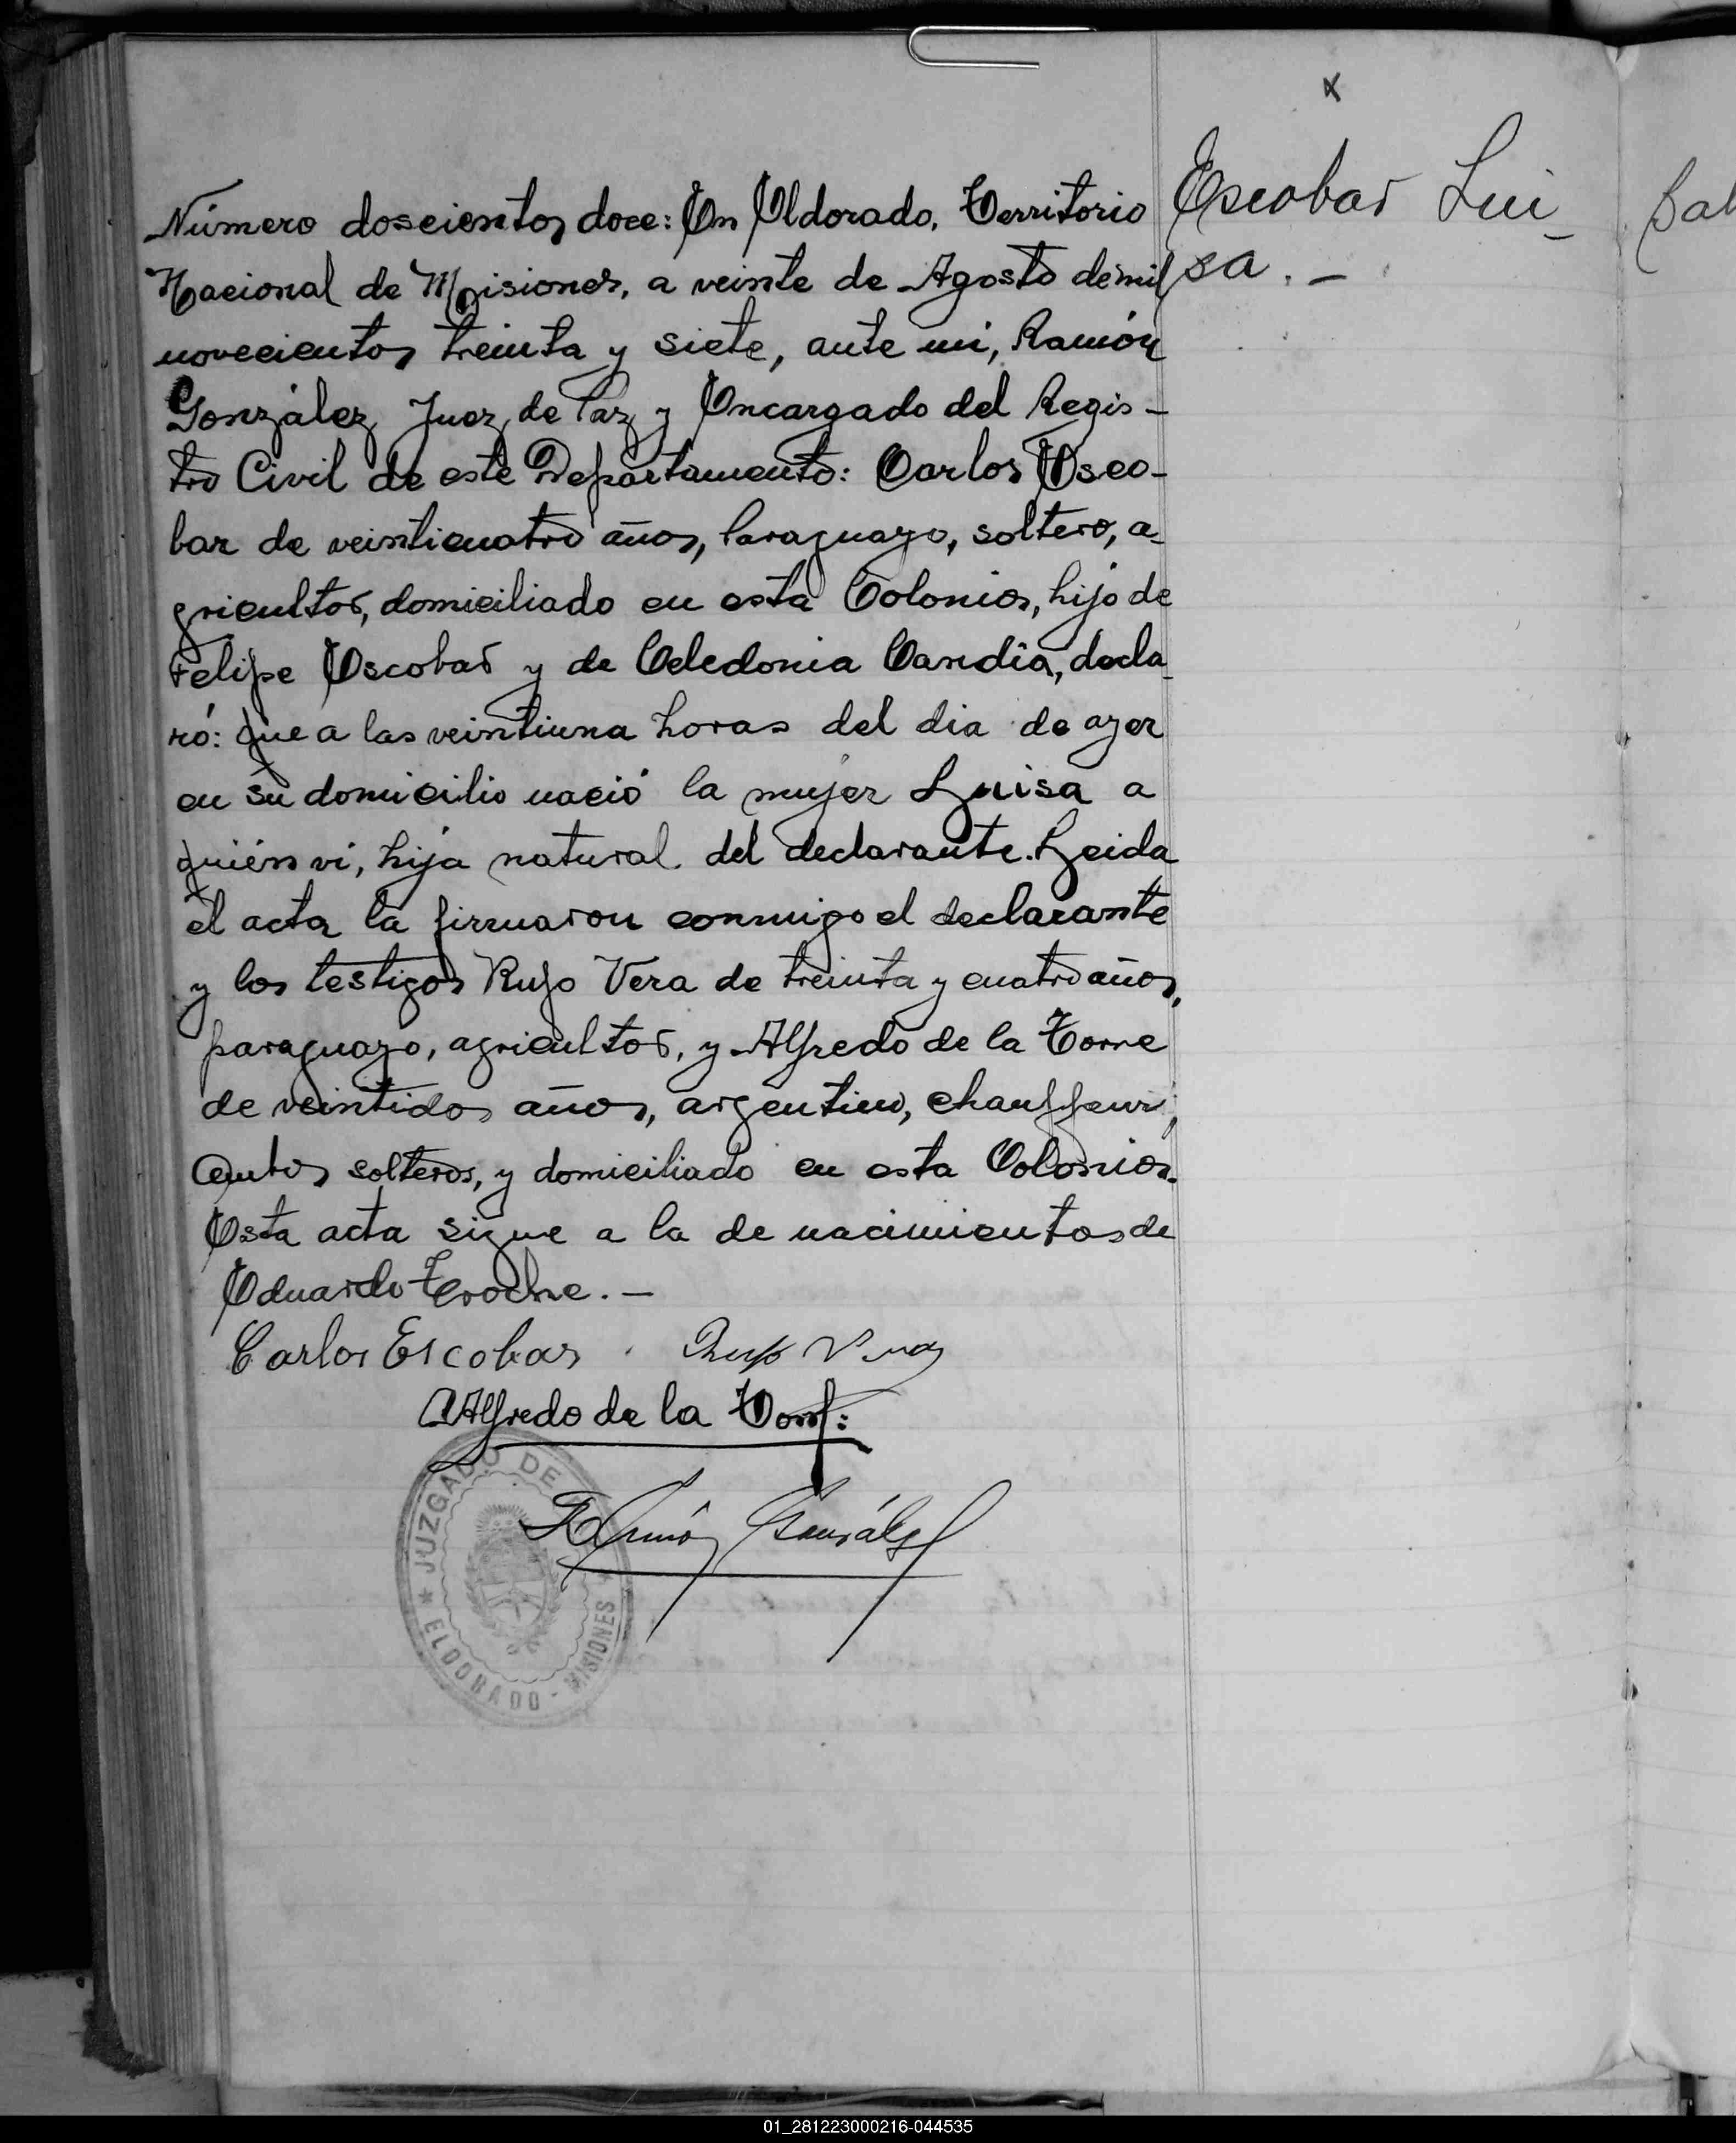 x
Escobar Lui-
sa.-
Número doscientos doce: En Eldorado, Territorio
Nacional de Misiones, a veinte de Agosto de mil
novecientos treinta y siete, ante mi, Ramón
González Juez de Paz y Encargado del Regis-
tro Civil de este Departamento: Carlos Esco-
bar de veinticuatro años, Paraguayo, soltero, a-
gricultor, domiciliado en esta Colonia, hijo de
Felipe Escobar y de Celedonia Candia, decla-
ró: Que a las veintiuna horas del dia de ayer
en su domicilio nació la mujer Luisa a
quién vi, hija natural del declarante. Leida
el acta la firmaron conmigo el declarante
y los testigos Rufo Vera de treinta y cuatro años,
paraguayo, agricultor, y Alfredo de la Torre
de veintidos años, argentino, chauffeur,
ambos solteros, y domiciliado en esta Colonia.
Esta acta sigue a la de nacimientos de
Eduardo Troche.-
Carlos Escobar Rufo Vera
Alfredo de la Torre
Ramón González
JUZGADO DE
ELDORADO - MISIONES
01_281223000216-044535